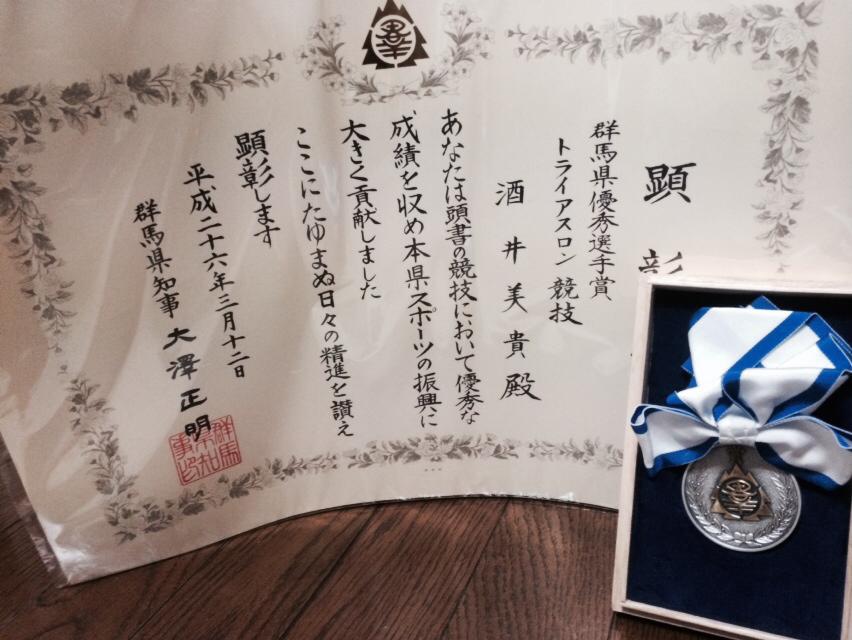 顕彰
群馬県優秀選手賞
トライアスロン競技
酒井美貴殿
あなたは頭書の競技において優秀な
成績を収め本県スポーツの振興に
大きく貢献しました
ここにたゆまぬ日々の精進を讃え
顕彰します
平成二十六年三月十二日
群馬県知事 大澤正明
群馬
県知
事印